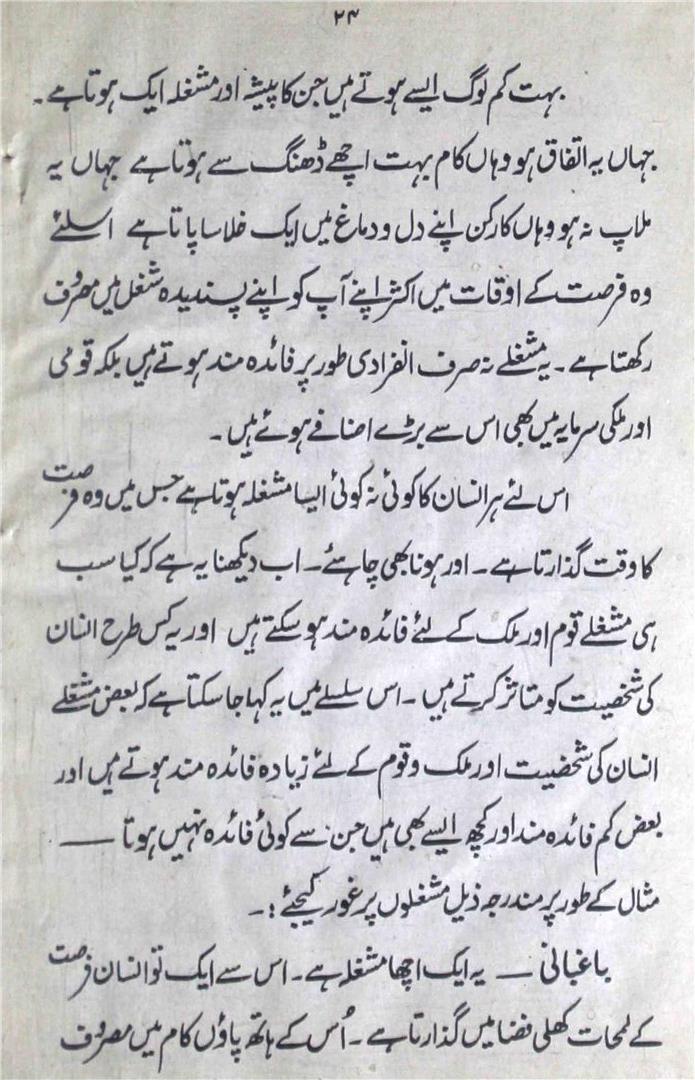 ۲۴
بہت کم لوگ ایسے ہوتے ہیں جن کا پیشہ اور مشغلہ ایک ہوتا ہے۔
جہاں یہ اتفاق ہو وہاں کام بہت اچھے ڈھنگ سے ہوتا ہے جہاں یہ
ملاپ نہ ہو وہاں کارکن اپنے دل و دماغ میں ایک خلا سا پاتا ہے اسلئے
وہ فرصت کے اوقات میں اکثر اپنے آپ کو اپنے پسندیدہ شغل میں مصروف
رکھتا ہے۔ یہ مشغلے نہ صرف انفرادی طور پر فائدہ مند ہوتے ہیں بلکہ قومی
اور ملکی سرمایہ میں بھی اس سے بڑے اضافے ہوئے ہیں۔
اس لئے ہر انسان کا کوئی نہ کوئی ایسا مشغلہ ہوتا ہے جس میں وہ فرصت
کا وقت گذارتا ہے۔ اور ہونا بھی چاہئے۔ اب دیکھنا یہ ہے کہ کیا سب
ہی مشغلے قوم اور ملک کے لئے فائدہ مند ہو سکتے ہیں اور یہ کس طرح انسان
کی شخصیت کو متاثر کرتے ہیں۔ اس سلسلے میں یہ کہا جا سکتا ہے کہ بعض مشغلے
انسان کی شخصیت اور ملک و قوم کے لئے زیادہ فائدہ مند ہوتے ہیں اور
بعض کم فائدہ مند اور کچھ ایسے بھی ہیں جن سے کوئی فائدہ نہیں ہوتا ——
مثال کے طور پر مندرجہ ذیل مشغلوں پر غور کیجئے :۔
باغبانی — یہ ایک اچھا مشغلہ ہے۔ اس سے ایک تو انسان فرصت
کے لمحات کھلی فضا میں گذارتا ہے۔ اُس کے ہاتھ پاؤں کام میں مصروف